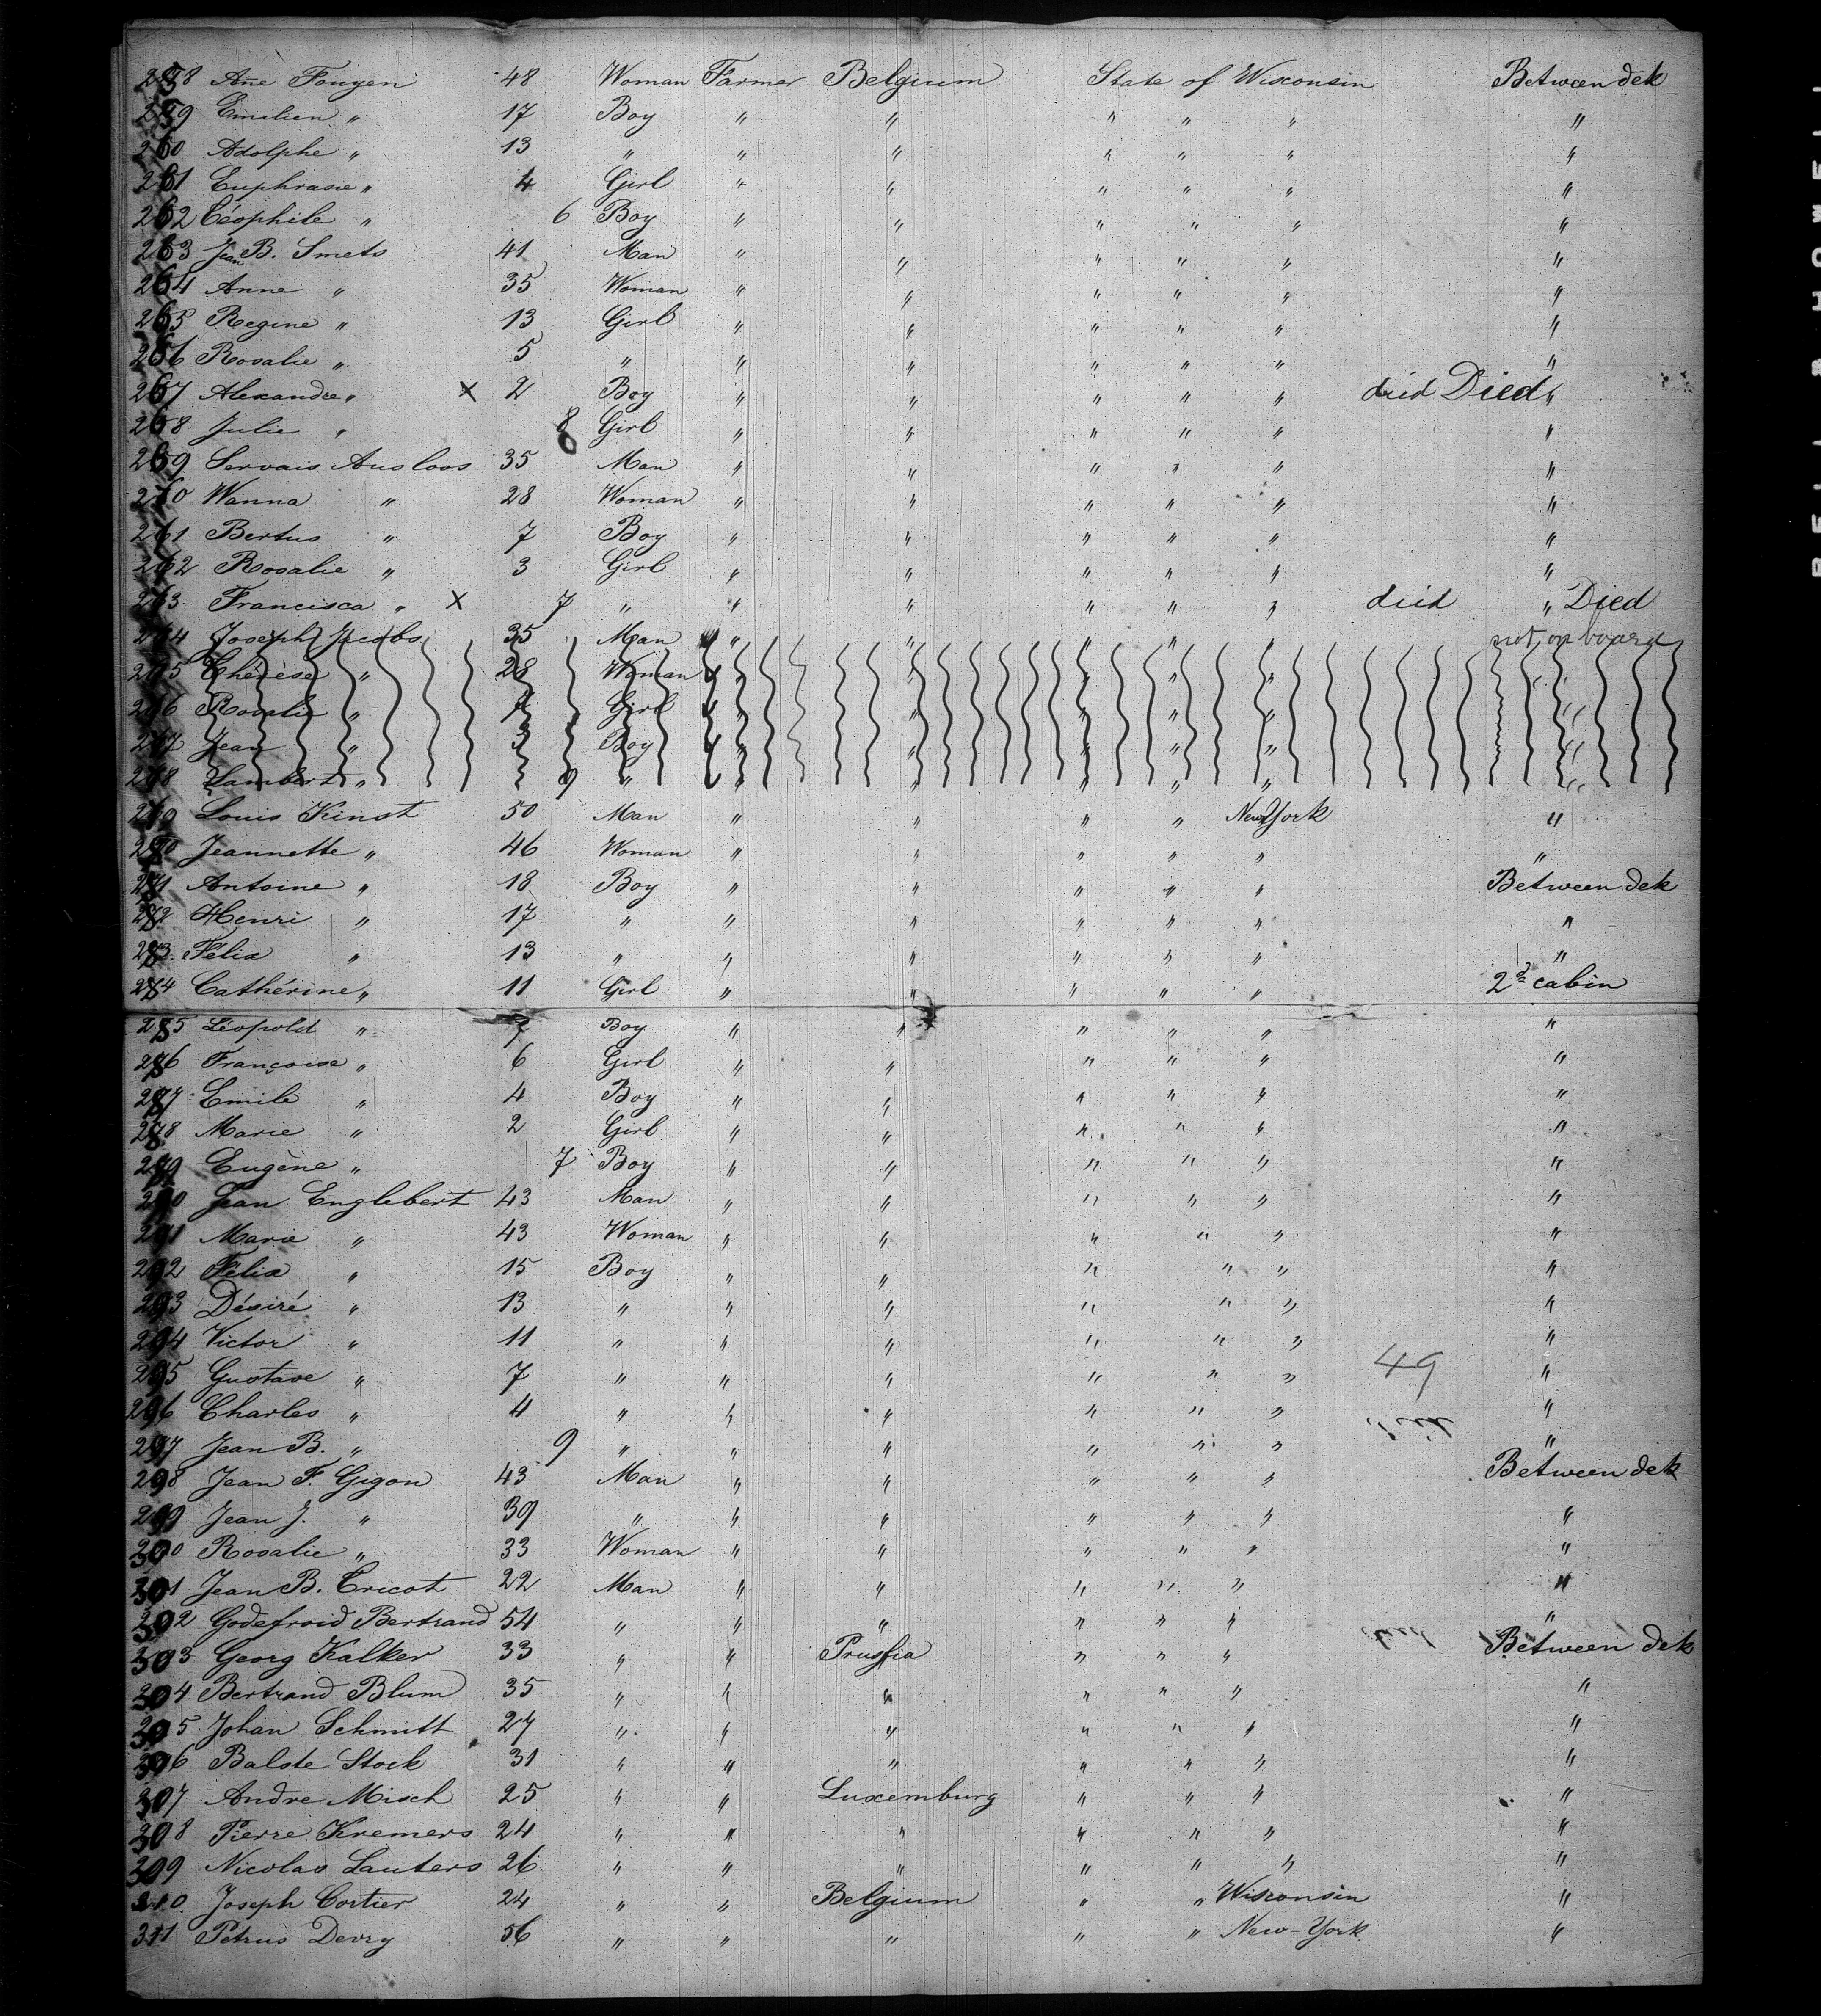 258 Ane Fouyen 48 Woman Farmer Belgium State of Wisconsin Between dek
259 Emilien " 17 Boy " " " " " "
260 Adolphe " 13 " " " " " " "
261 Euphrasie " 4 Girl " " " " " "
262 Téophile " 6 Boy " " " " " "
263 Jean B. Smets 41 Man " " " " " "
264 Anne " 35 Woman " " " " " "
265 Regine " 13 Girl " " " " " "
266 Rosalie " 5 " " " " " " "
267 Alexandre " X 2 Boy " " " " " died Died "
268 Julie " 8 Girl " " " " " "
269 Servais Ausloos 35 Man " " " " " "
270 Wanna " 28 Woman " " " " " "
261 Bertus " 7 Boy " " " " " "
262 Rosalie " 3 Girl " " " " " "
263 Francisca " X 7 " " " " " " died " Died
264 Joseph Jacobs 35 Man " " " " " not on board
265 Thérèse " 28 Woman " " " " " "
266 Rosalie " 7 Girl " " " " " "
267 Jean " 3 Boy " " " " " "
268 Lambert " 9 " " " " " " "
Louis Kinst 50 Man " " " " New York "
280 Jeannette " 46 Woman " " " " " "
281 Antoine " 18 Boy " " " " " Between dek
282 Henri " 17 " " " " " " "
283 Félix " 13 " " " " " " "
284 Cathérine " 11 Girl " " " " " 2d cabin
285 Léopold " 7 Boy " " " " " "
286 Françoise " 6 Girl " " " " " "
287 Emile " 4 Boy " " " " " "
288 Marie " 2 Girl " " " " " "
289 Eugène " 7 Boy " " " " " "
290 Jean Englebert 43 Man " " " " " "
291 Marie " 43 Woman " " " " " "
292 Félix " 15 Boy " " " " " "
293 Désiré " 13 " " " " " " "
294 Victor " 11 " " " " " " "
295 Gustave " 7 " " " " " " 49 "
296 Charles " 4 " " " " " " "
297 Jean B. " 9 " " " " " " "
298 Jean F. Gigon 43 Man " " " " " Between dek
299 Jean J. " 39 " " " " " " "
300 Rosalie " 33 Woman " " " " " "
301 Jean B. Tricot 22 Man " " " " " "
302 Godefroid Bertrand 54 " " " " " " "
303 Georg Kalker 33 " " Prussia " " " Between dek
304 Bertrand Blum 35 " " " " " " "
305 Johan Schmitt 27 " " " " " " "
306 Balste Stock 31 " " " " " " "
307 Andre Misch 25 " " Luxemburg " " " "
308 Pierre Kremers 24 " " " " " " "
309 Nicolas Lauters 26 " " " " " " "
310 Joseph Cortier 24 " " Belgium " " Wisconsin "
311 Petrus Devry 56 " " " " " New-York "